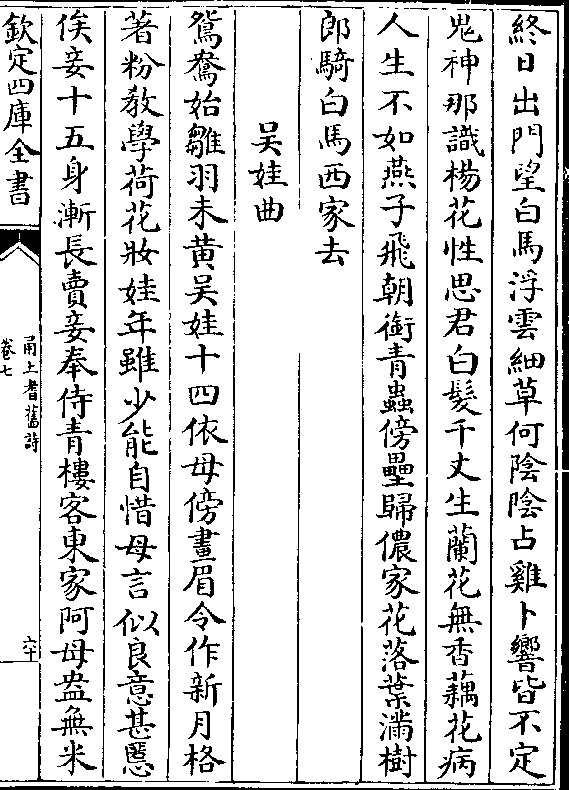 終日出門望白馬浮雲細草何陰陰占雞卜響皆不定
鬼神那識楊花性思君白髮千丈生蘭花無香藕花病
人生不如燕子飛朝銜青蟲傍壘歸儂家花落葉滿樹
郎騎白馬西家去
吳娃曲
鴛鴦始雛羽未黄吳娃十四依母傍畫眉令作新月格
著粉教學荷花妝娃年雖少能自惜母言似良意甚慝
俟妾十五身漸長賣妾奉侍青樓客東家阿母盎無米
欽定四庫全書
甬上耆舊詩
卷七
六十